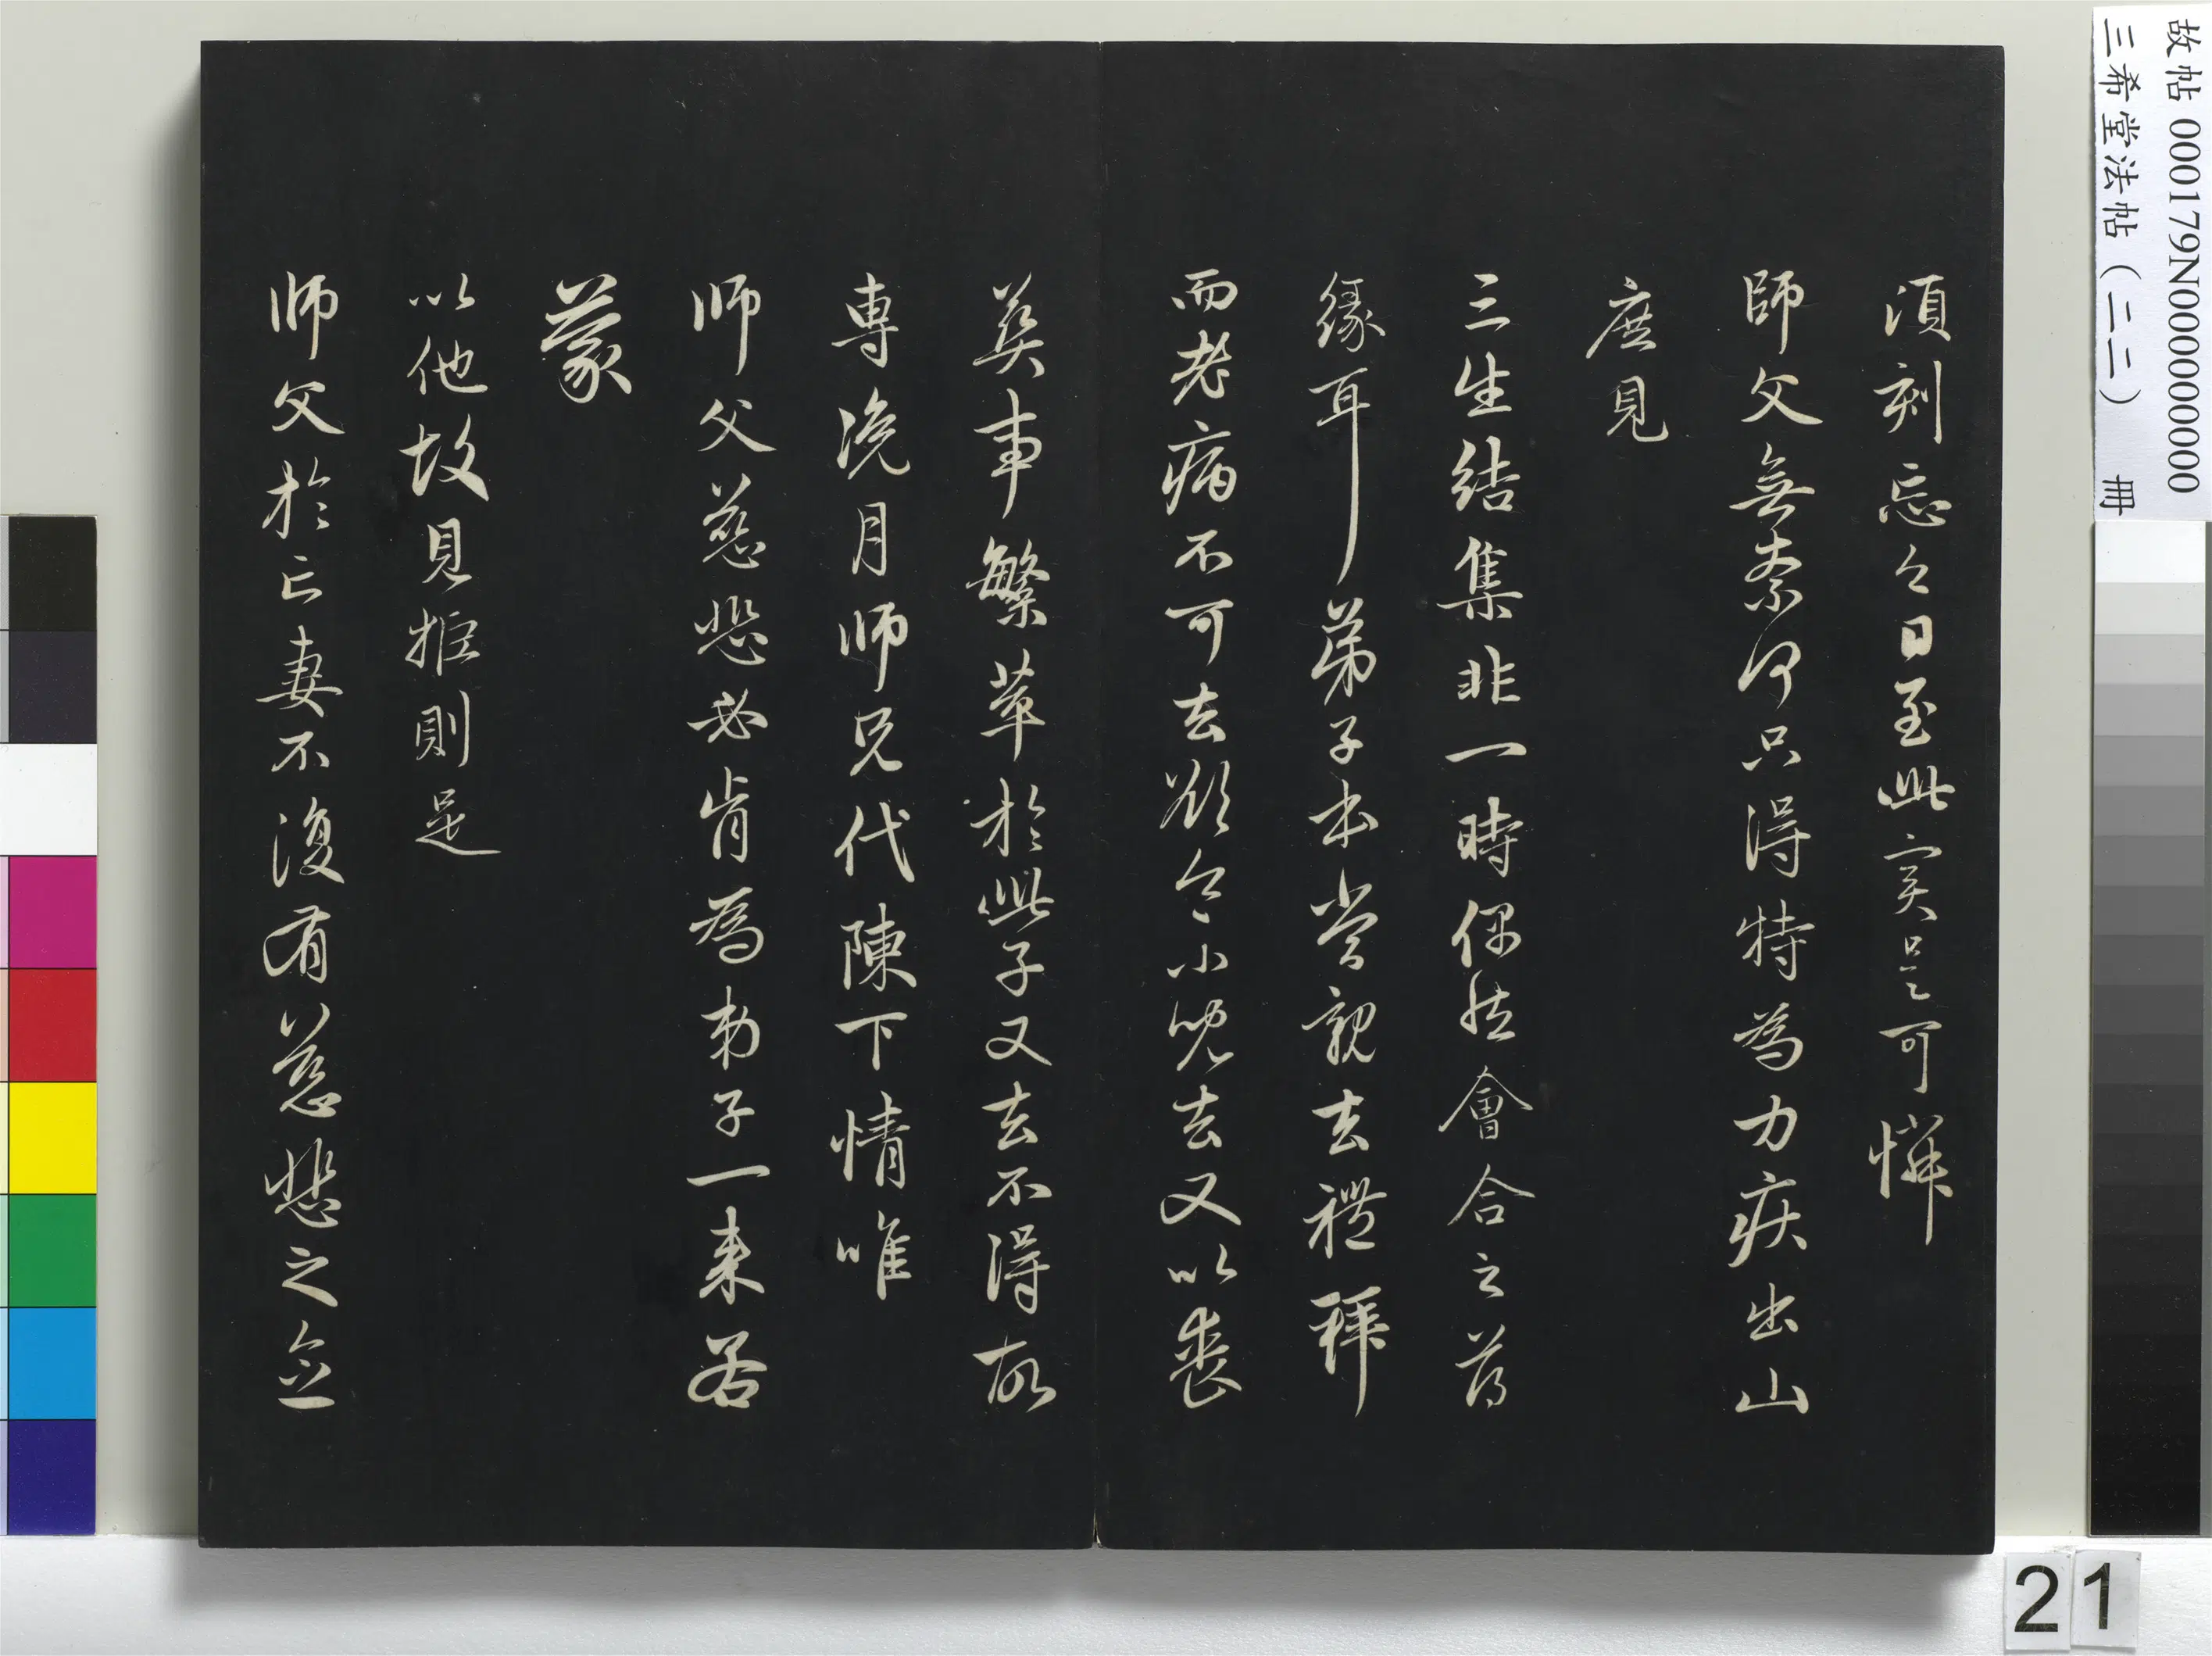 須刻忘今日至此實是可憐
師父無奈何只得特為力疾出山
庶見
三生結集非一時偶然會合之前
緣耳弟子本當親去禮拜
而老病不可去欲令小兒去又以喪
葬事繁萃於此子又去不得故
專浼月師兄代陳下情唯
師父慈悲必肯為弟子一來若
蒙
以他故見拒則是
師父於亡妻不復有慈悲之念
故帖 000179N000000000
三希堂法帖（二二） 冊
21